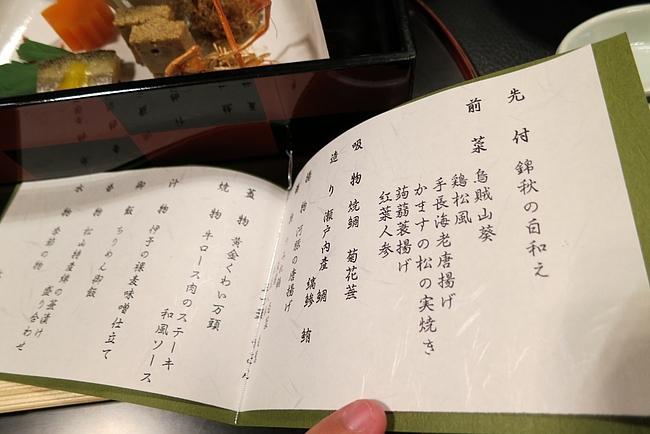 先付 錦秋の白和え
前菜 烏賊山葵
鶏松風
手長海老唐揚げ
かますの松の実焼き
蒟蒻蓑揚げ
紅葉人参
吸物 焼鯛 菊花蕪
造り 瀬戸内産 鯛
縞鯵 鮪
揚物 河豚の唐揚げ
蓋物 黄金くわい万頭
焼物 牛ロース肉のステーキ
和風ソース
汁物 伊予の裸麦味噌仕立て
御飯 ちりめん御飯
香物 松山特産緋の蕪漬け
盛り合わせ
水物 季節の物